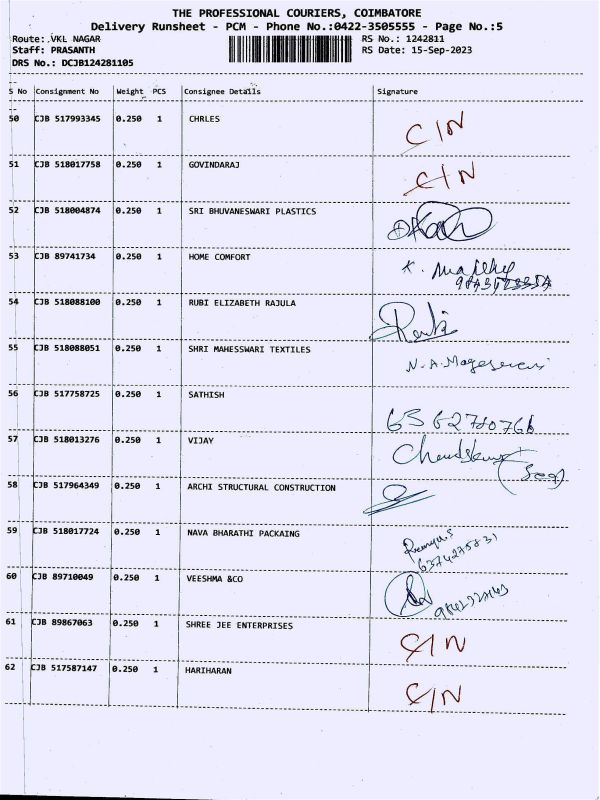 THE PROFESSIONAL COURIERS, COIMBATORE
Delivery Runsheet - PCM - Phone No.:0422-3505555 - Page No.:5
Route: VKL NAGAR RS No.: 1242811
Staff: PRASANTH RS Date: 15-Sep-2023
DRS No.: DCJB124281105
S No Consignment No Weight PCS Consignee Details Signature
50 CJB 517993345 0.250 1 CHRLES C/N
51 CJB 518017758 0.250 1 GOVINDARAJ C/N
52 CJB 518004874 0.250 1 SRI BHUVANESWARI PLASTICS
53 CJB 89741734 0.250 1 HOME COMFORT
54 CJB 518088100 0.250 1 RUBI ELIZABETH RAJULA
55 CJB 518088051 0.250 1 SHRI MAHESSWARI TEXTILES N.A.Mageswari
56 CJB 517758725 0.250 1 SATHISH
57 CJB 518013276 0.250 1 VIJAY
58 CJB 517964349 0.250 1 ARCHI STRUCTURAL CONSTRUCTION
59 CJB 518017724 0.250 1 NAVA BHARATHI PACKAING
6374275831
60 CJB 89710049 0.250 1 VEESHMA &CO
61 CJB 89867063 0.250 1 SHREE JEE ENTERPRISES C/N
62 CJB 517587147 0.250 1 HARIHARAN C/N